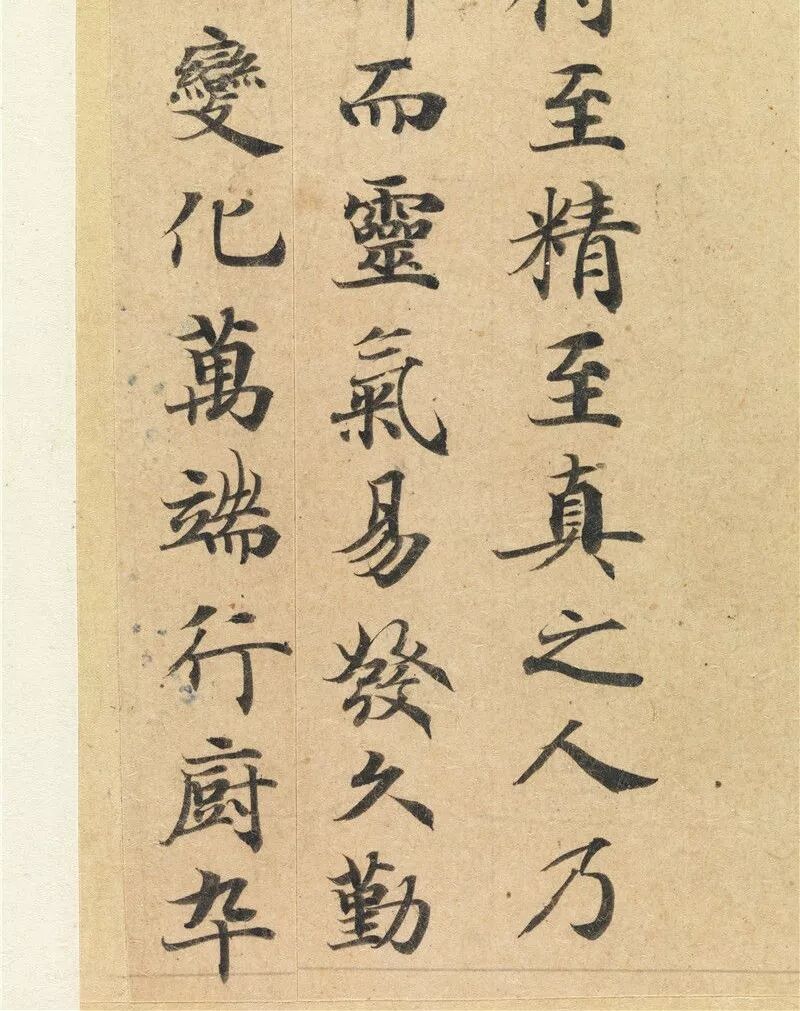 至精至真之人乃
而靈氣易發久勤
變化萬端行廚卒